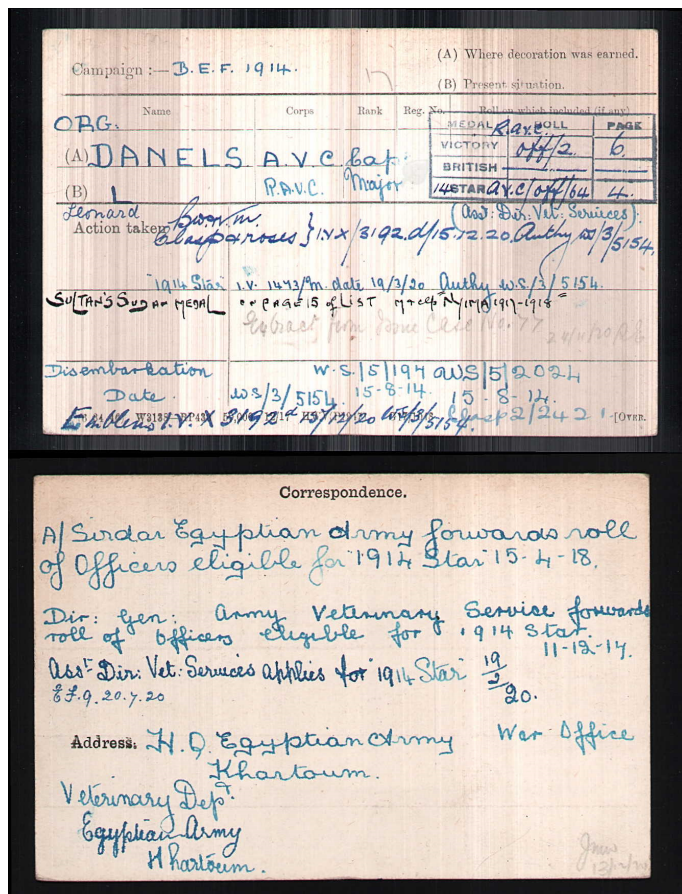 (A) Where decoration was earned.
Campaign :— B.E.F. 1914.
17
(B) Present situation.
Name Corps Rank Reg. No. Roll on which included (if any)
ORG.
MEDAL ROLL PAGE
R.a.v.c.
(A) DANELS A.V.C. Cap
VICTORY off/2 6.
BRITISH
(B) L R.A.V.C. Major
14 STAR a.v.c/off/64 4.
Leonard
(Asst: Dir: Vet: Services).
Action taken
Clasp & roses } I.V.X/3192.d/15.12.20. Authy ws/3/5154.
"1914 Star" I.V. 1473/M. date 19/3/20 Authy w.s./3/5154.
SULTAN'S SUDAN MEDAL PAGE 15 of LIST "NYIMA 1917-1918"
Extract from Issue Case No. 77
Disembarkation W.S/5/194 WS/5/2024
Date ws/3/5154. 15-8-14. 15-8-14.
Emblems I.V. X 3192d 15/12/20 WS/3/5154. Clasp 2/2421 [OVER.
Correspondence.
A/ Sirdar Egyptian Army forwards roll
of Officers eligible for "1914 Star" 15-4-18.
Dir: Gen: Army Veterinary Service forwards
roll of officers eligible for 1914 Star.
11-12-17.
Asst Dir: Vet: Services applies for "1914 Star" 19/2/20.
E.F.9. 20.7.20
Address. H.Q. Egyptian Army War Office
Khartoum.
Veterinary Dept.
Egyptian Army
Khartoum.